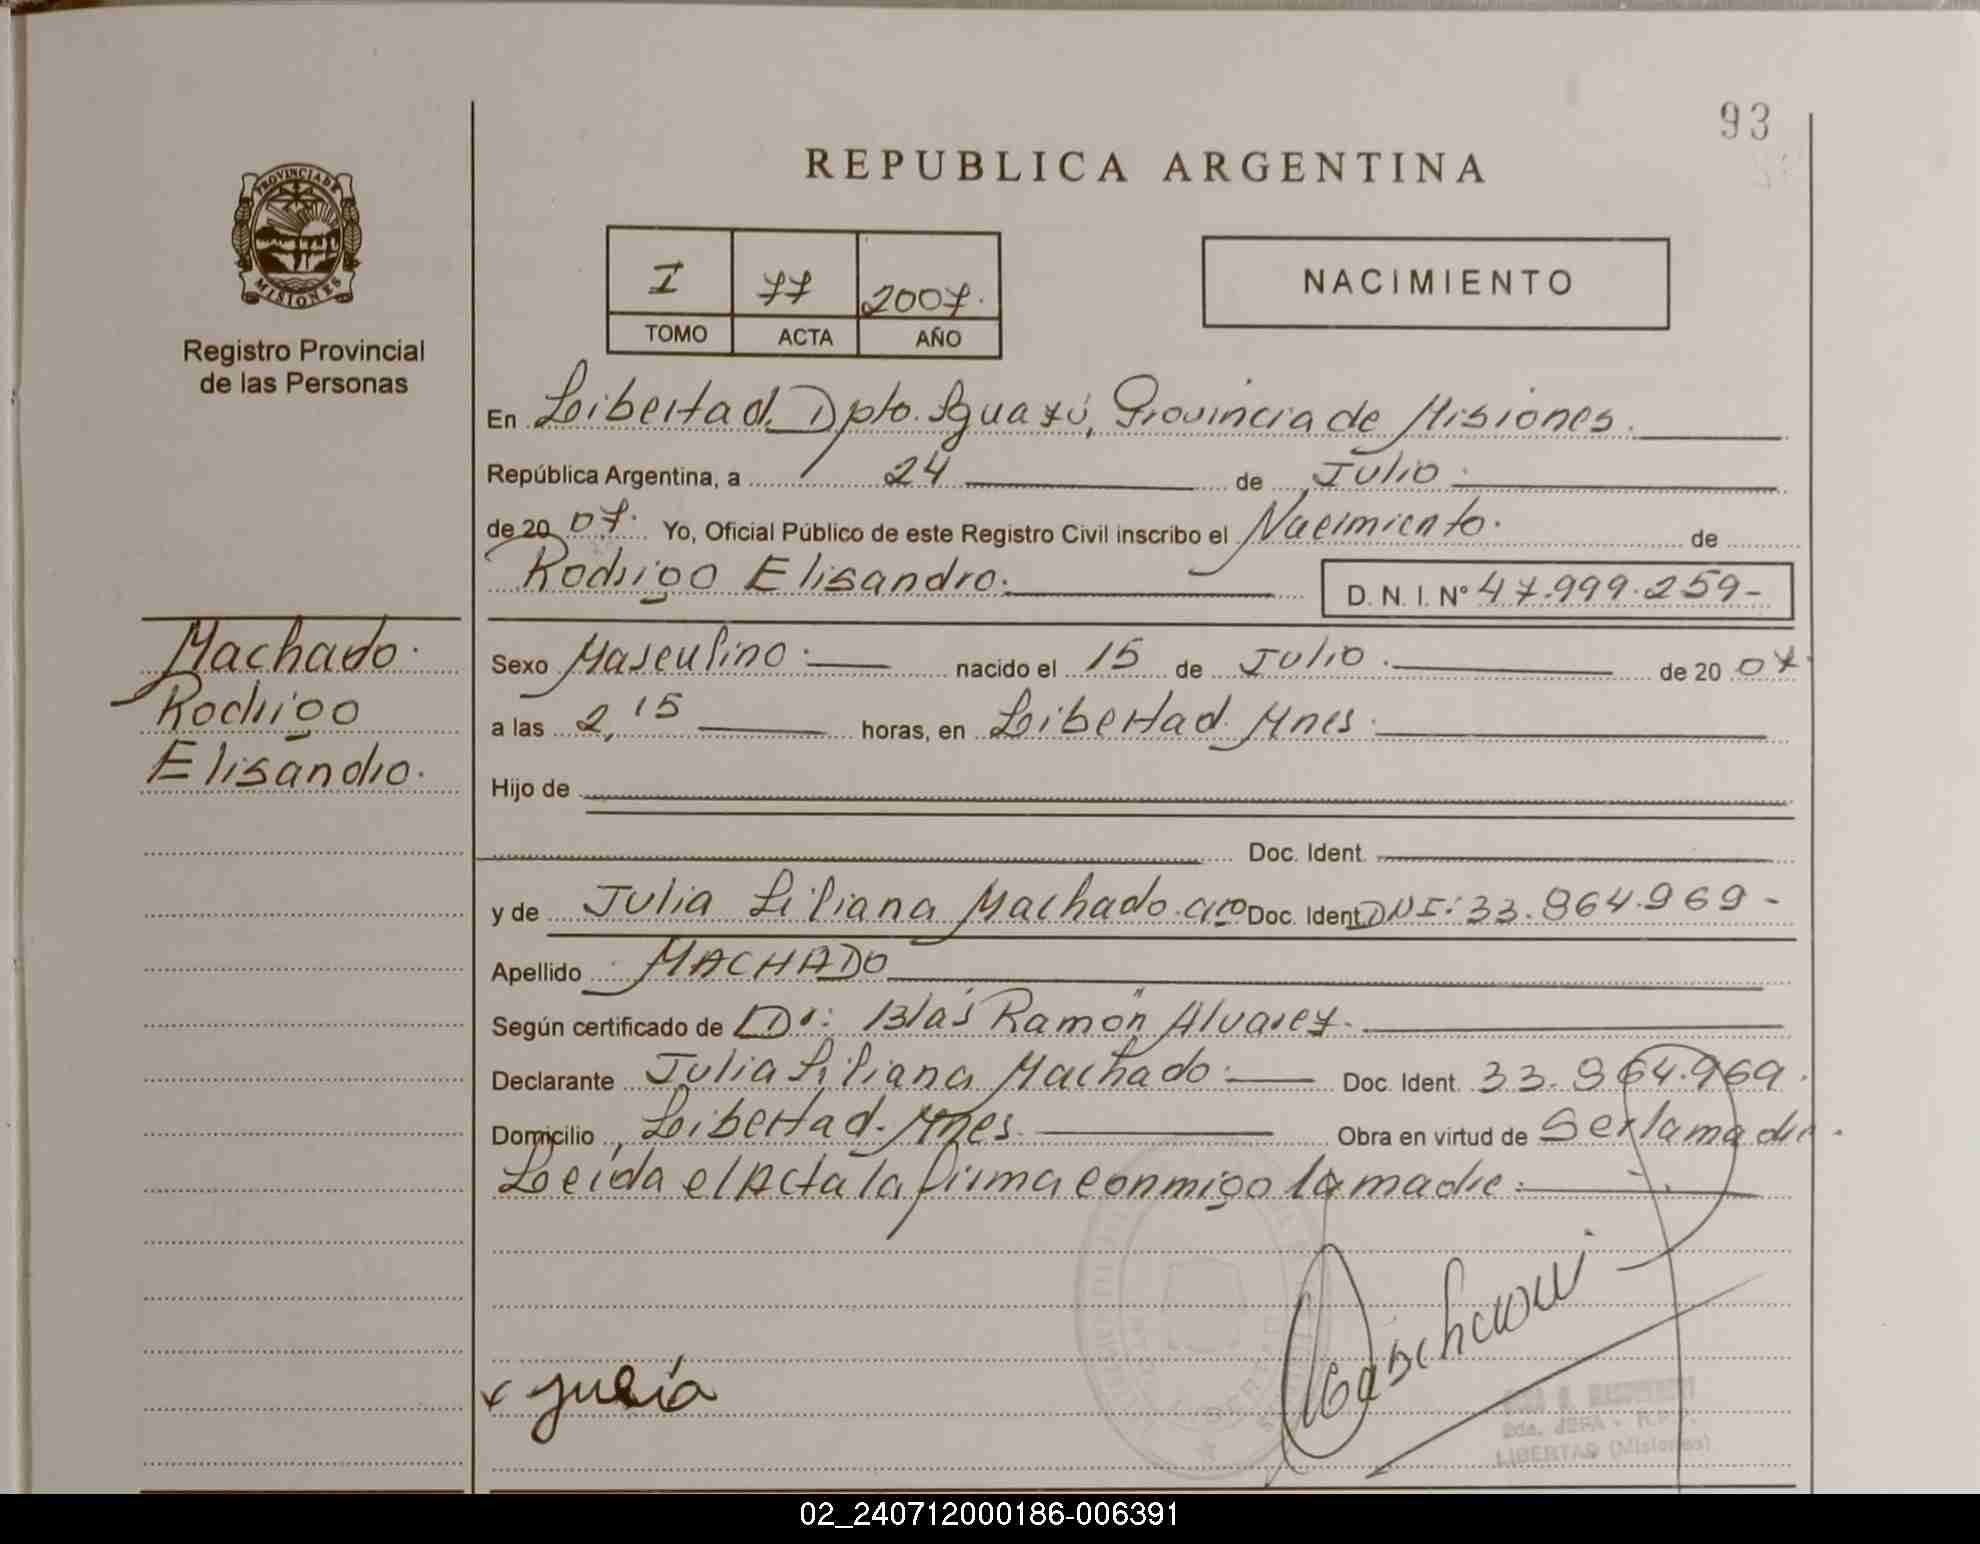 93
REPUBLICA ARGENTINA
PROVINCIA DE
MISIONES
Registro Provincial
de las Personas
I 77 2007.
TOMO ACTA AÑO
NACIMIENTO
En Libertad, Dpto. Iguazú, Provincia de Misiones.
República Argentina, a 24 de Julio.
de 20 07. Yo, Oficial Público de este Registro Civil inscribo el Nacimiento. de
Rodrigo Elisandro. D. N. I. Nº 47.999.259-
Machado.
Rodrigo
Elisandro.
Sexo Masculino. nacido el 15 de Julio. de 20 07.
a las 2,15 horas, en Libertad. Mnes.
Hijo de
Doc. Ident.
y de Julia Liliana Machado. arg Doc. Ident. DNI: 33.964.969-
Apellido MACHADO
Según certificado de Dr: Blás Ramón Alvarez.
Declarante Julia Liliana Machado. Doc. Ident. 33.964.969.
Domicilio Libertad. Mnes. Obra en virtud de Ser la madre.
Leída el Acta la firma conmigo la madre.
x julia
LIBERTAD (Misiones)
02_240712000186-006391